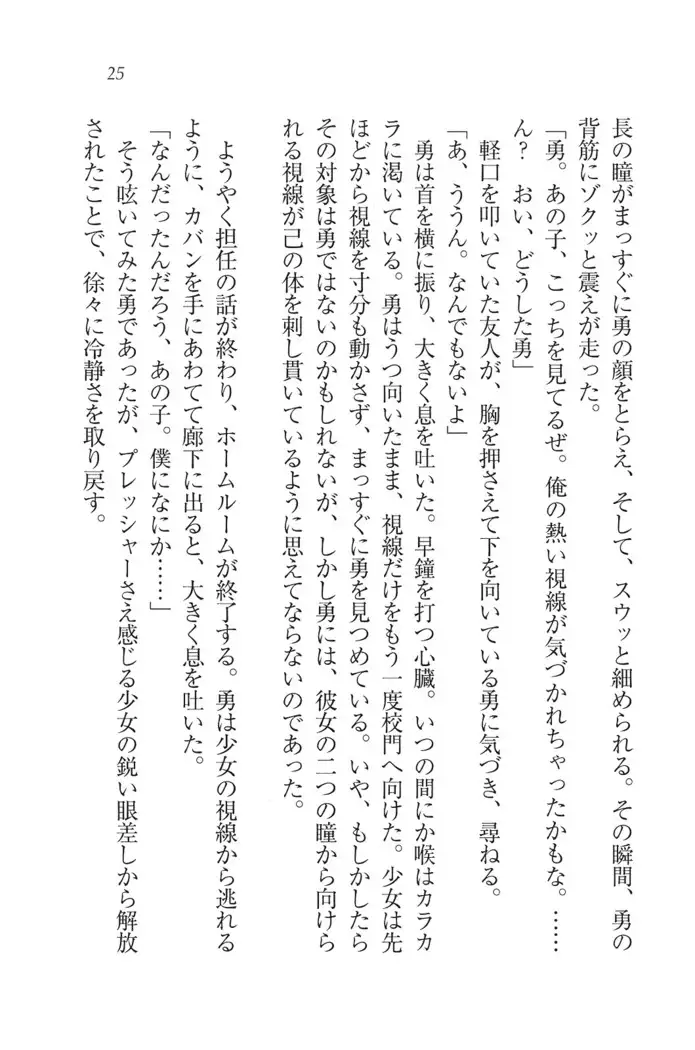 25
長の瞳がまっすぐに勇の顔をとらえ、そして、スウッと細められる。その瞬間、勇の
背筋にゾクッと震えが走った。
「勇。あの子、こっちを見てるぜ。俺の熱い視線が気づかれちゃったかもな。……
ん？　おい、どうした勇」
軽口を叩いていた友人が、胸を押さえて下を向いている勇に気づき、尋ねる。
「あ、ううん。なんでもないよ」
勇は首を横に振り、大きく息を吐いた。早鐘を打つ心臓。いつの間にか喉はカラカ
ラに渇いている。勇はうつ向いたまま、視線だけをもう一度校門へ向けた。少女は先
ほどから視線を寸分も動かさず、まっすぐに勇を見つめている。いや、もしかしたら
その対象は勇ではないのかもしれないが、しかし勇には、彼女の二つの瞳から向けら
れる視線が己の体を刺し貫いているように思えてならないのであった。
ようやく担任の話が終わり、ホームルームが終了する。勇は少女の視線から逃れる
ように、カバンを手にあわてて廊下に出ると、大きく息を吐いた。
「なんだったんだろう、あの子。僕になにか……」
そう呟いてみた勇であったが、プレッシャーさえ感じる少女の鋭い眼差しから解放
されたことで、徐々に冷静さを取り戻す。